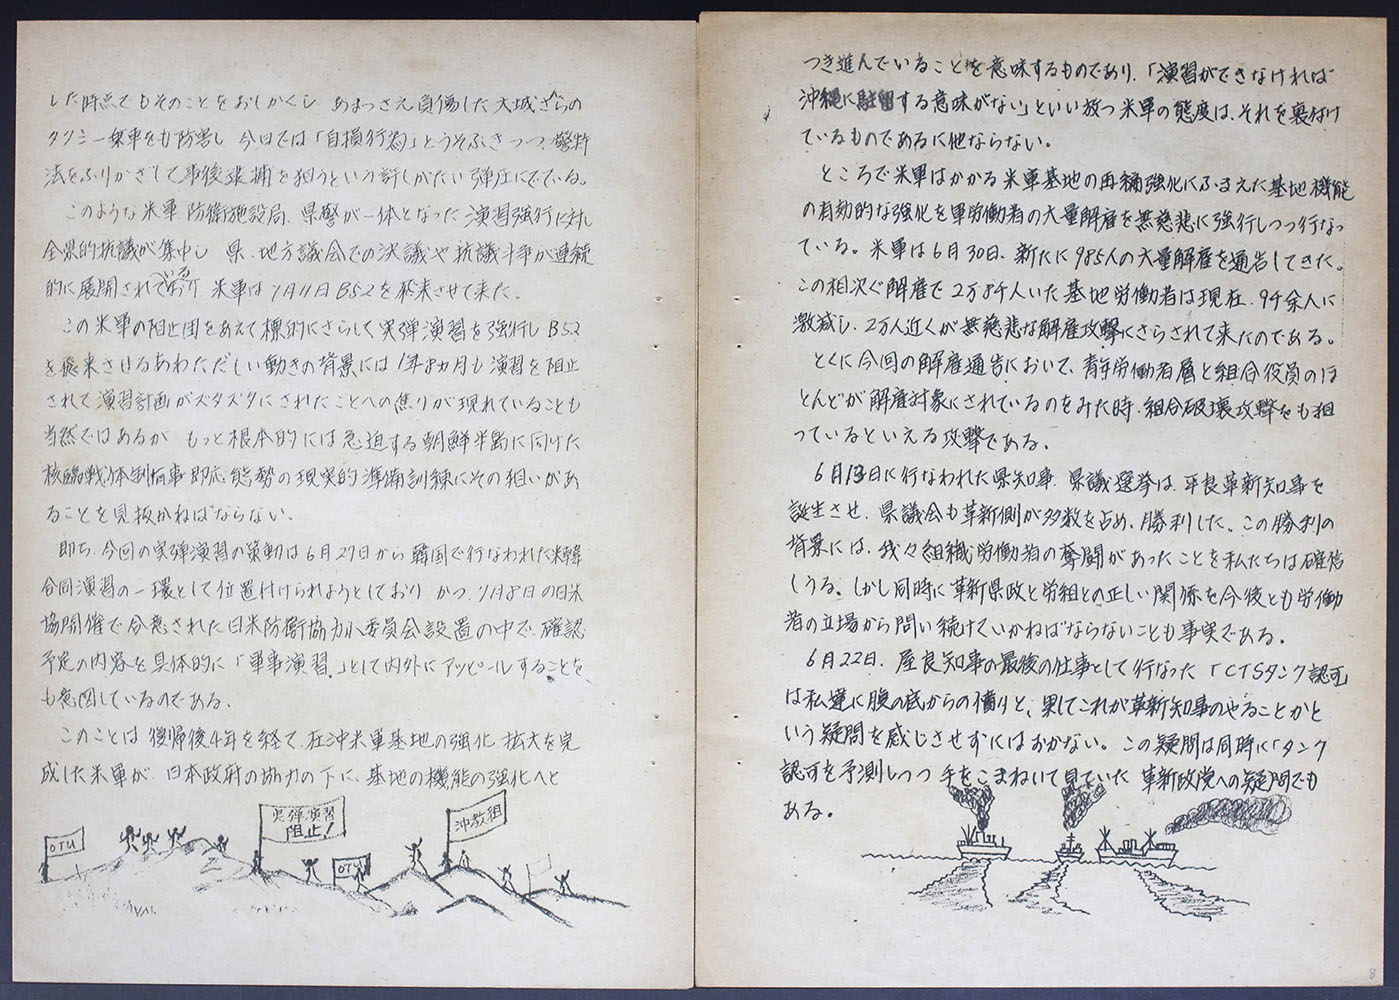 した時点でもそのことをおしかくし あまつさえ負傷した大城さんの
タクシー乗車をも防害し 今日では「自損行為」とうそぶきつつ、警特
法をふりかざして事後逮捕を狙うという許しがたい弾圧にでている。
このような米軍 防衛施設局、県警が一体となった演習強行に対し
全県的抗議が集中し 県、地方議会での決議や抗議斗争が連続
的に展開されている 米軍は7月11日B52を飛来させて来た。
この米軍の阻止団をあえて標的にさらして実弾演習を強行し B52
を飛来させるあわただしい動きの背景には 1年8ヵ月も演習を阻止
されて演習計画がズタズタにされたことへの焦りが現れていることも
当然ではあるが もっと根本的には急迫する朝鮮半島に向けた
核臨戦体制 即応態勢の現実的準備訓練にその狙いがあ
ることを見抜かねばならない。
即ち、今回の実弾演習の策動は6月27日から韓国で行なわれた米韓
合同演習の一環として位置付けられようとしており かつ、7月8日の日米
協開催で合意された日米防衛協力小委員会設置の中で、確認
予定の内容を具体的に「軍事演習」として内外にアッピールすることを
も意図しているのである。
このことは 復帰後4年を経て、在沖米軍基地の強化、拡大を完
成した米軍が、日本政府の協力の下に、基地の機能の強化へと
OTU
実弾演習
阻止!
OTU
沖教組
つき進んでいることを意味するものであり、「演習ができなければ
沖縄に駐留する意味がない」といい放つ米軍の態度は、それを裏付け
ているものであるに他ならない。
ところで米軍はかかる米軍基地の再編強化にふまえた基地機能
の有効的な強化を軍労働者の大量解雇を無慈悲に強行しつつ行なっ
ている。米軍は6月30日、新たに985人の大量解雇を通告してきた。
この相次ぐ解雇で2万8千人いた基地労働者は現在、9千余人に
激減し、2万人近くが無慈悲な解雇攻撃にさらされて来たのである。
とくに今回の解雇通告において、青年労働者層と組合役員のほ
とんどが解雇対象にされているのをみた時、組合破壊攻撃をも狙
っているといえる攻撃である。
6月13日に行なわれた県知事、県議選挙は、平良革新知事を
誕生させ、県議会も革新側が多数を占め、勝利した、この勝利の
背景には、我々組織労働者の奮闘があったことを私たちは確信
しうる。しかし同時に革新県政と労組との正しい関係を今後とも労働
者の立場から問い続けていかねばならないことも事実である。
6月22日、屋良知事の最後の仕事として行なった「CTSタンク認可」
は私達に腹の底からの憤りと、果してこれが革新知事のやることかと
いう疑問を感じさせずにはおかない。この疑問は同時に「タンク
認可を予測しつつ 手をこまねいて見ていた 革新政党への疑問でも
ある。
8